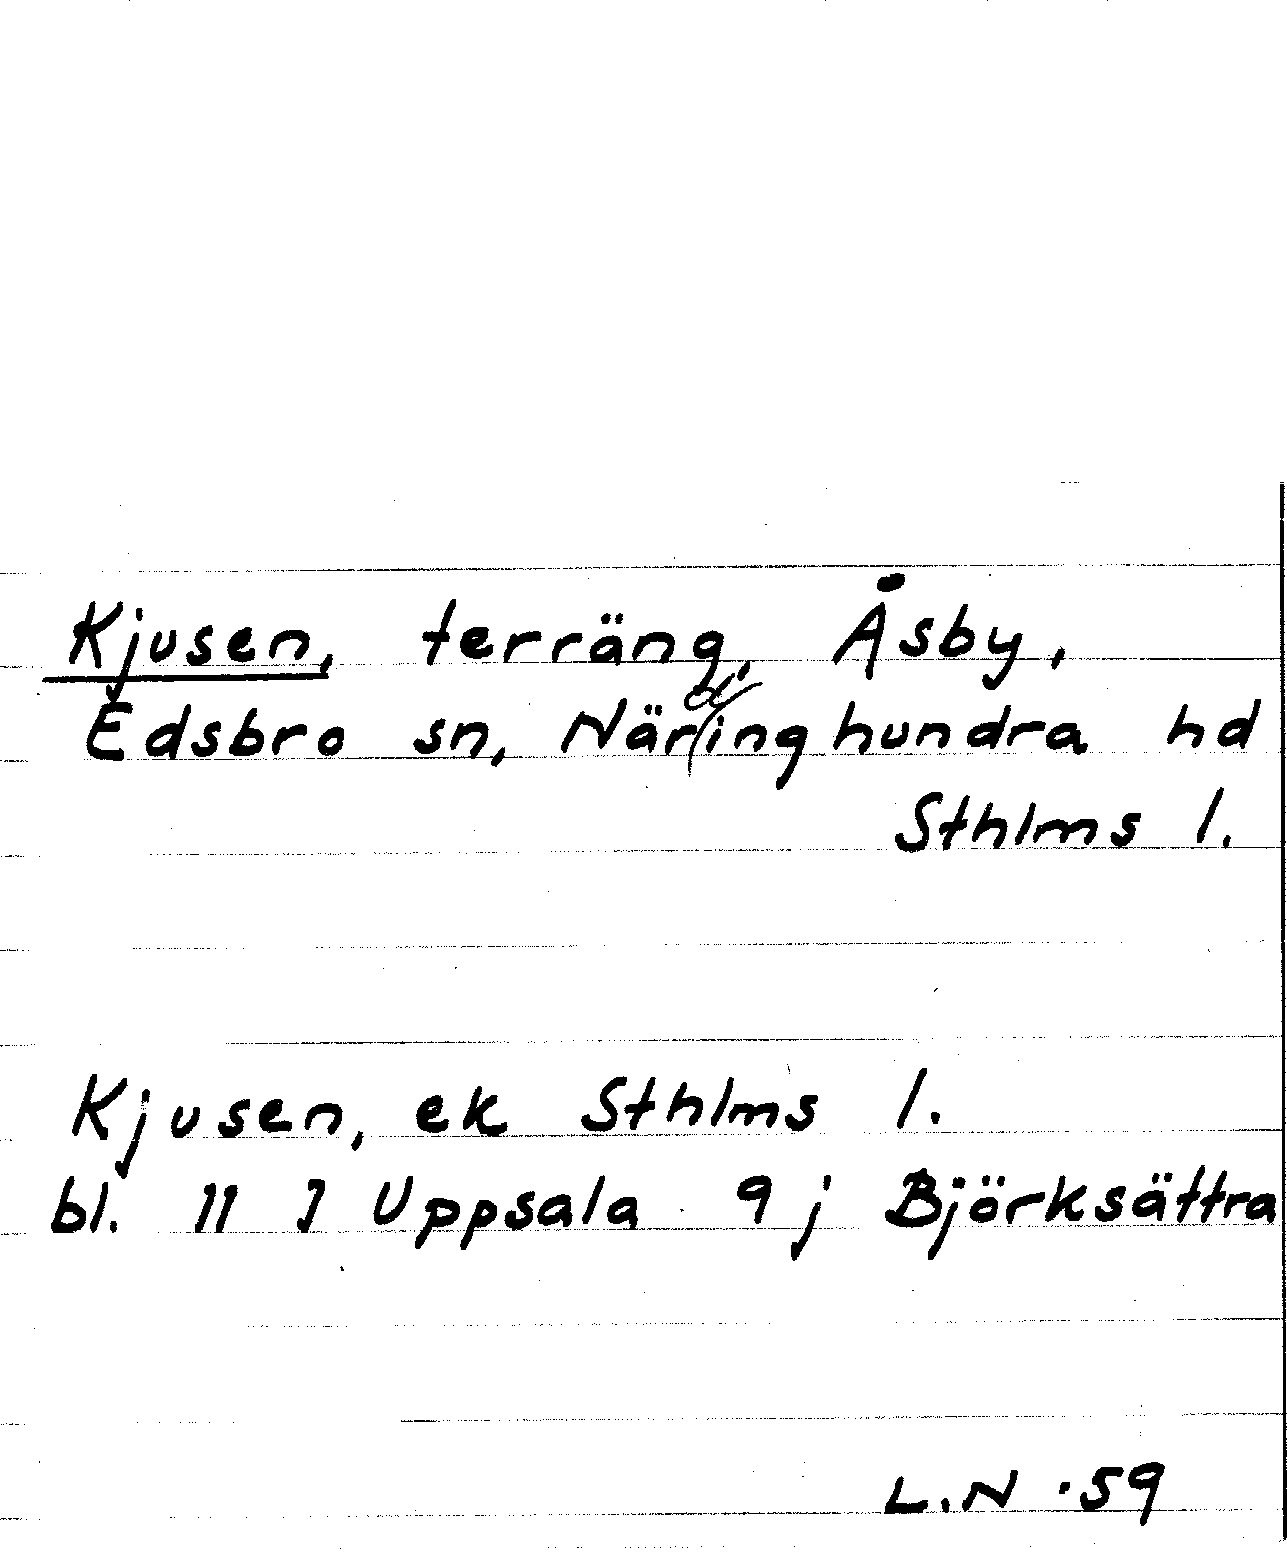 Kjusen, terräng, Åsby,
Edsbro sn, Närdinghundra hd
Sthlms l.
Kjusen, ek Sthlms l.
bl. 11 J Uppsala 9 j Björksättra
L.N. 59